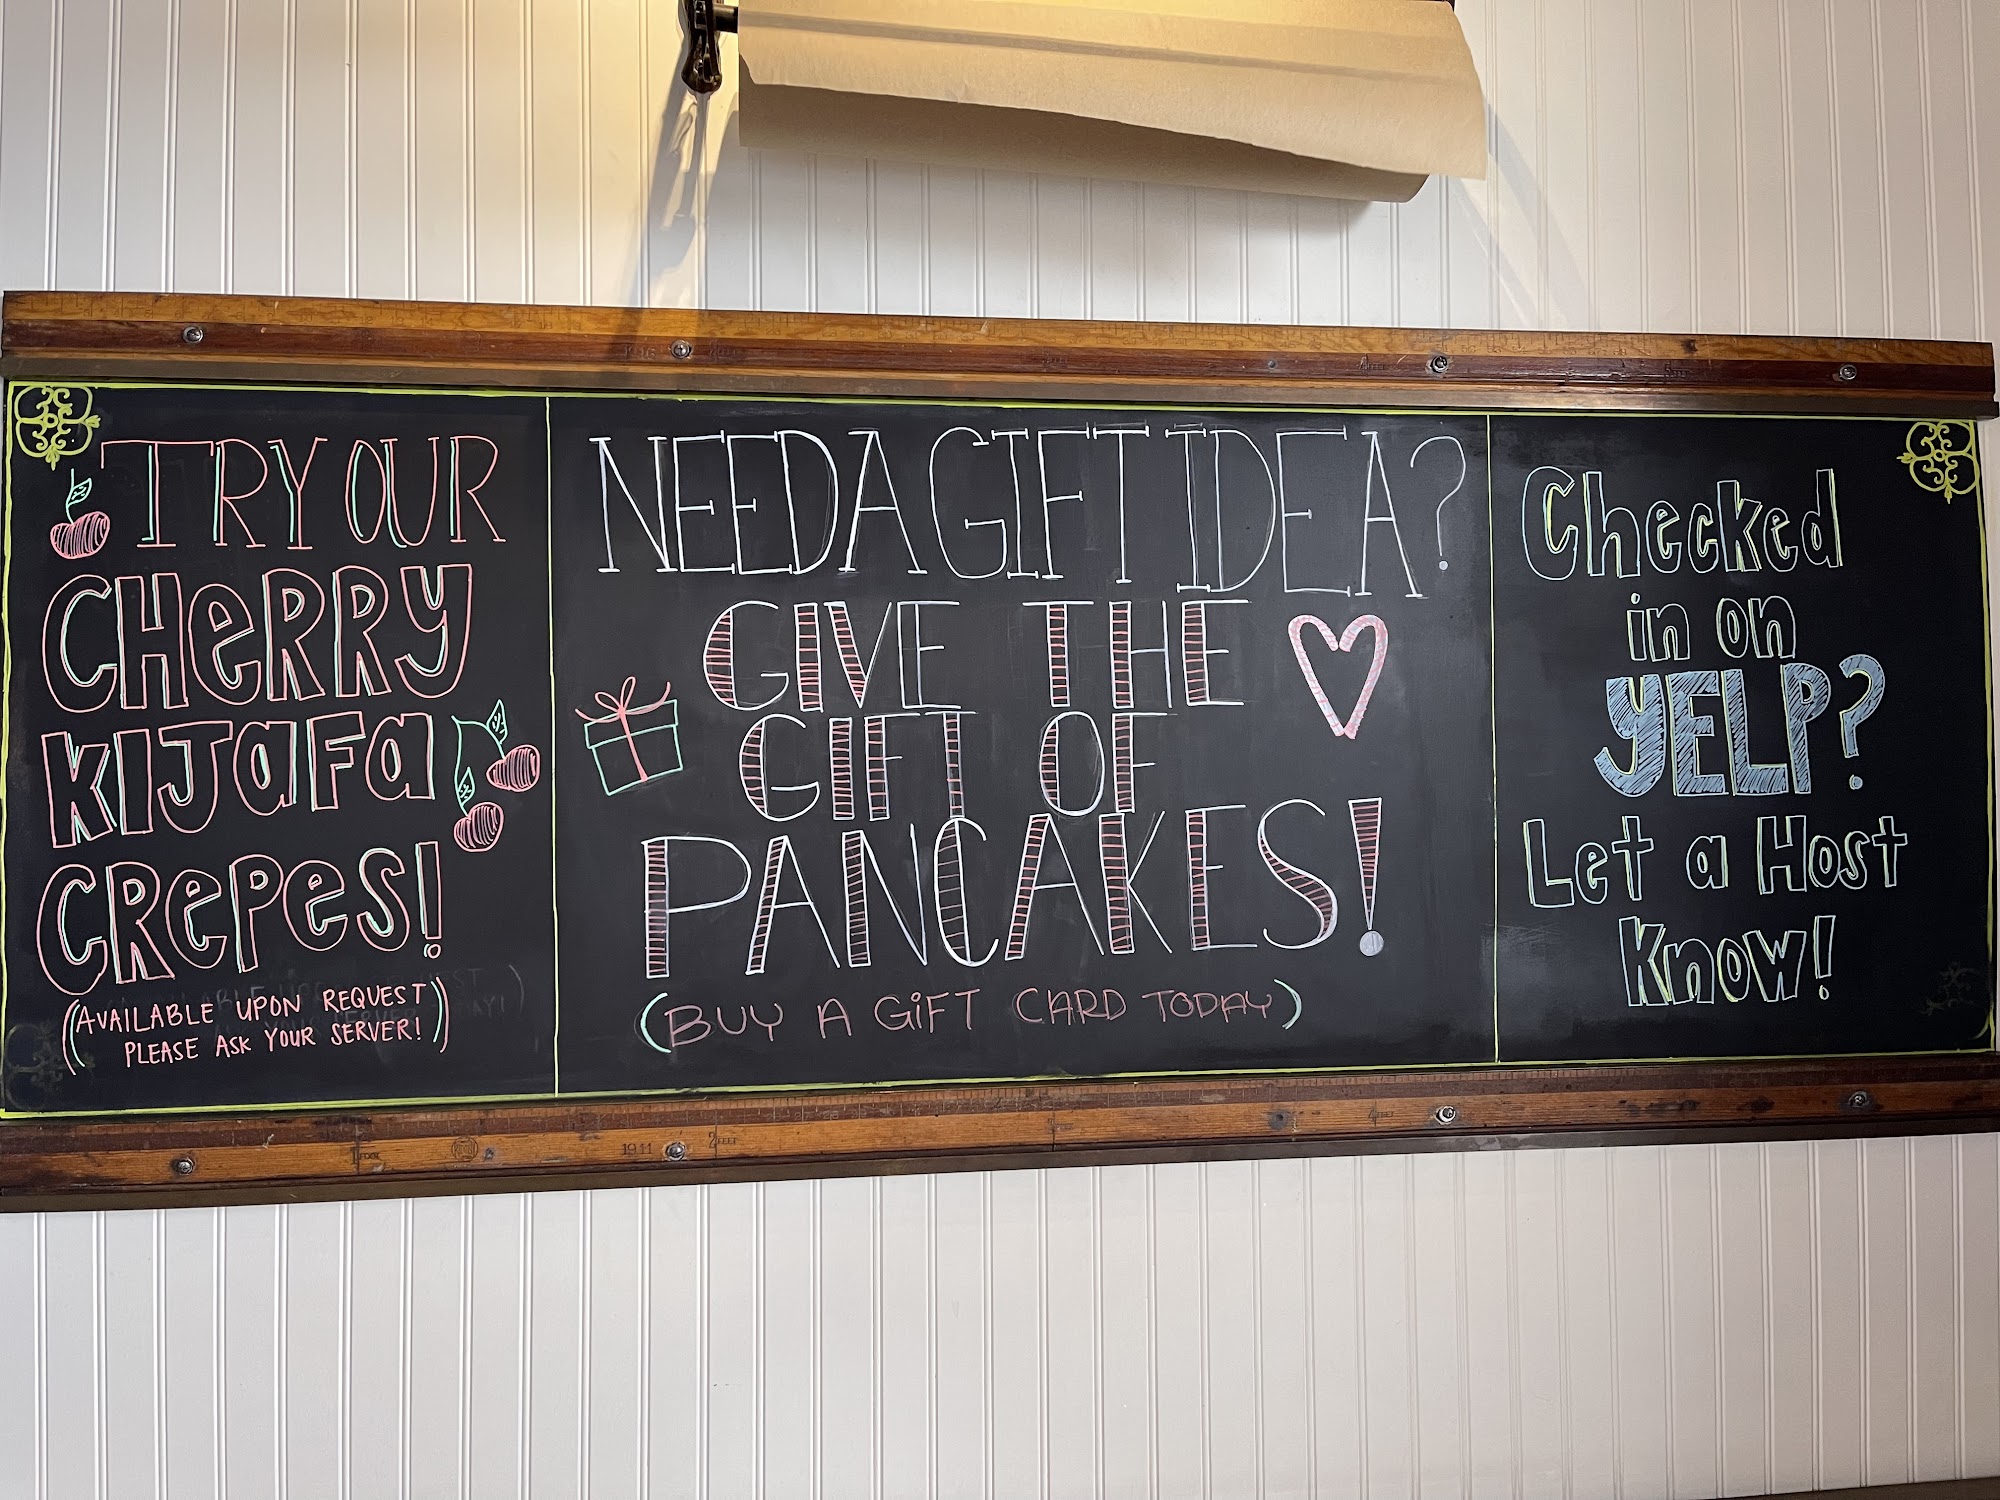 TRY OUR
CHeRRY
KIJaFa
CRePeS!
(AVAILABLE UPON REQUEST
PLEASE ASK YOUR SERVER!)
NEED A GIFT IDEA?
GIVE THE
GIFT OF
PANCAKES!
(BUY A GiFT CARD TODAY)
Checked
in on
YELP?
Let a Host
Know!
1911
2 FEET